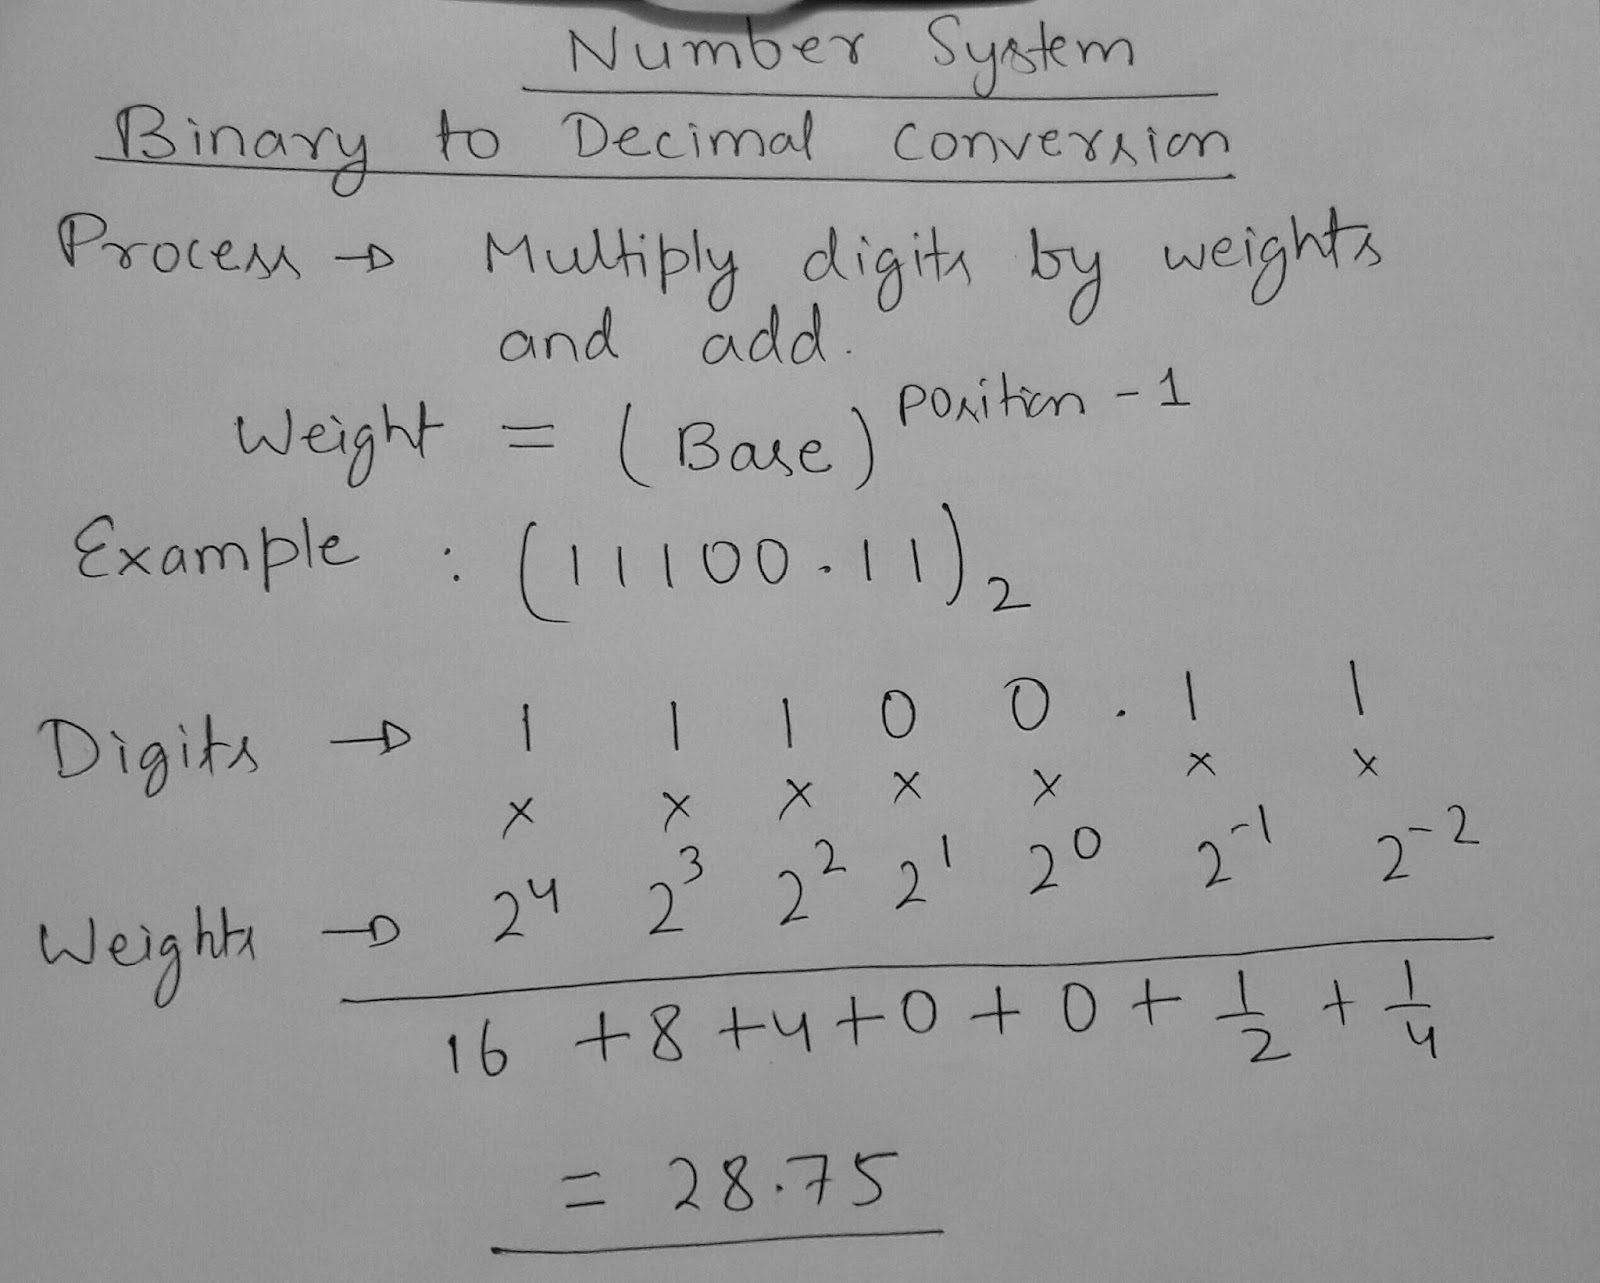 Number System
Binary to Decimal conversion
Process → Multiply digits by weights
and add.
Weight = (Base)^position - 1
Example : (11100.11)₂
Digits → 1 1 1 0 0 . 1 1
× × × × × × ×
Weights → 2⁴ 2³ 2² 2¹ 2⁰ 2⁻¹ 2⁻²
16 + 8 + 4 + 0 + 0 + 1/2 + 1/4
= 28.75